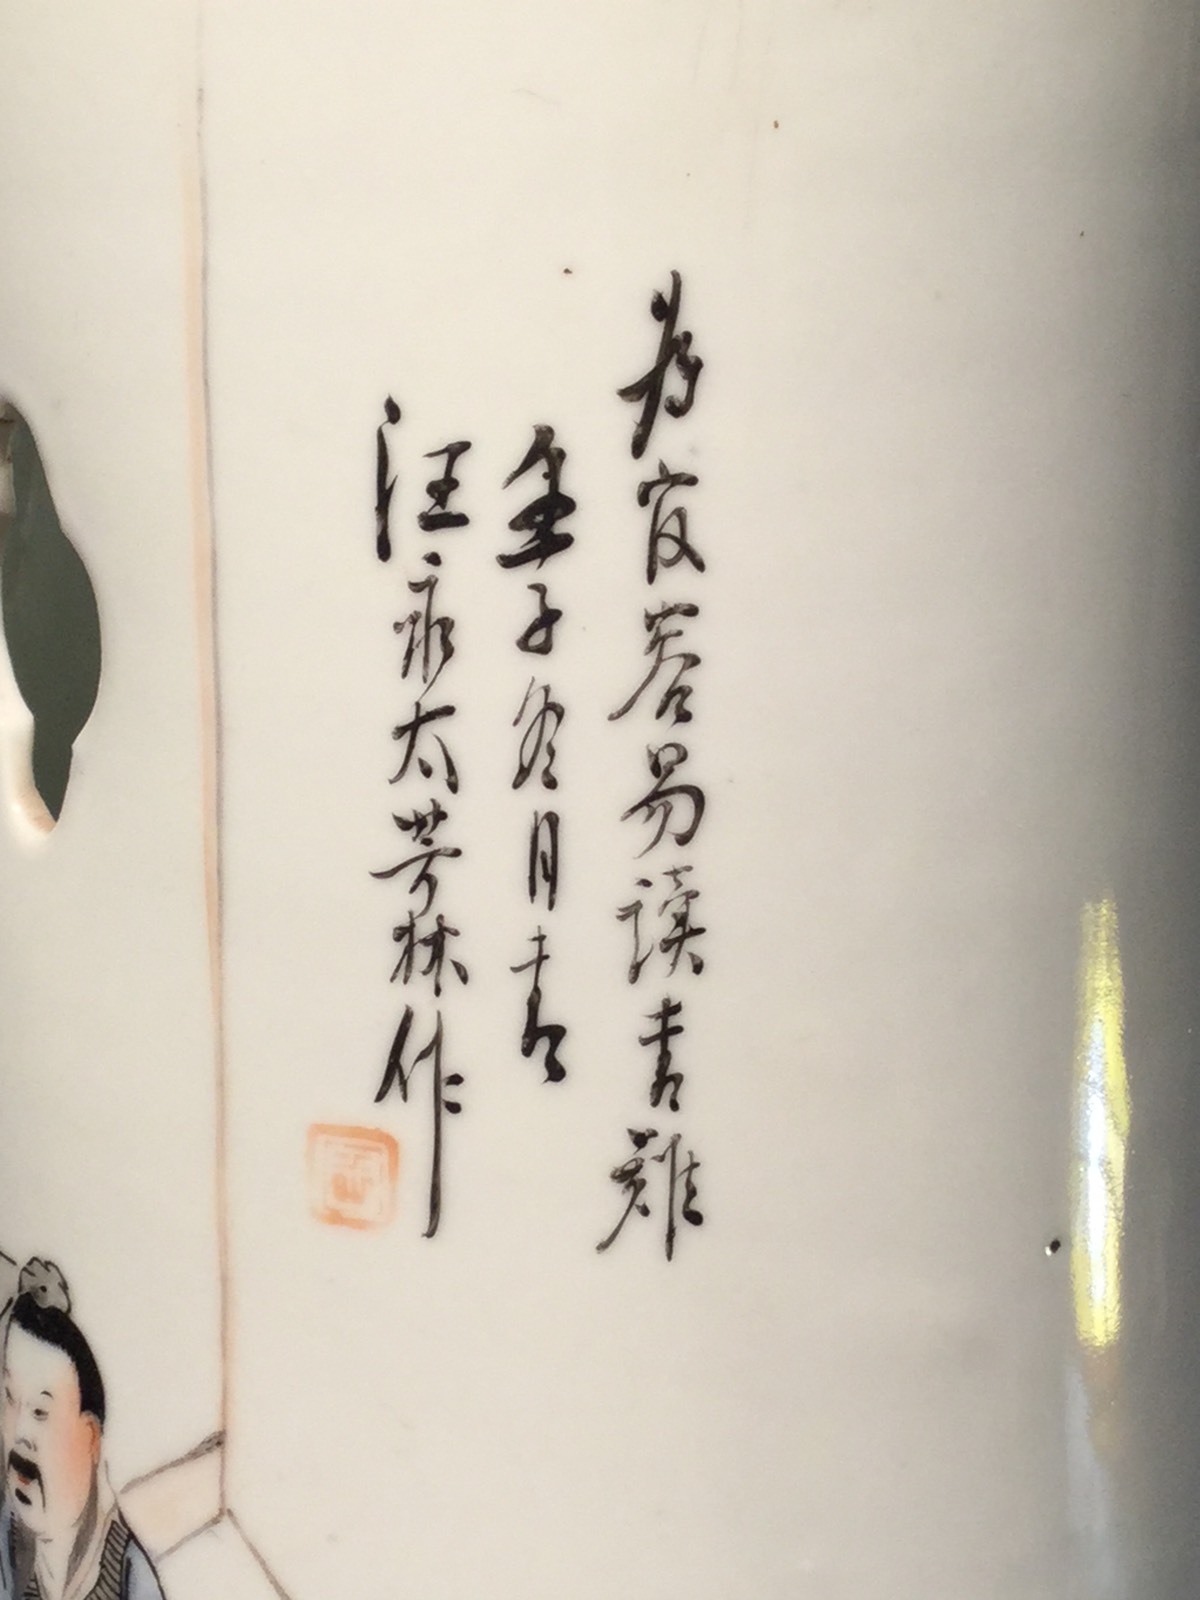 為官容易讀書難
壬子冬月書
汪永太芳林作